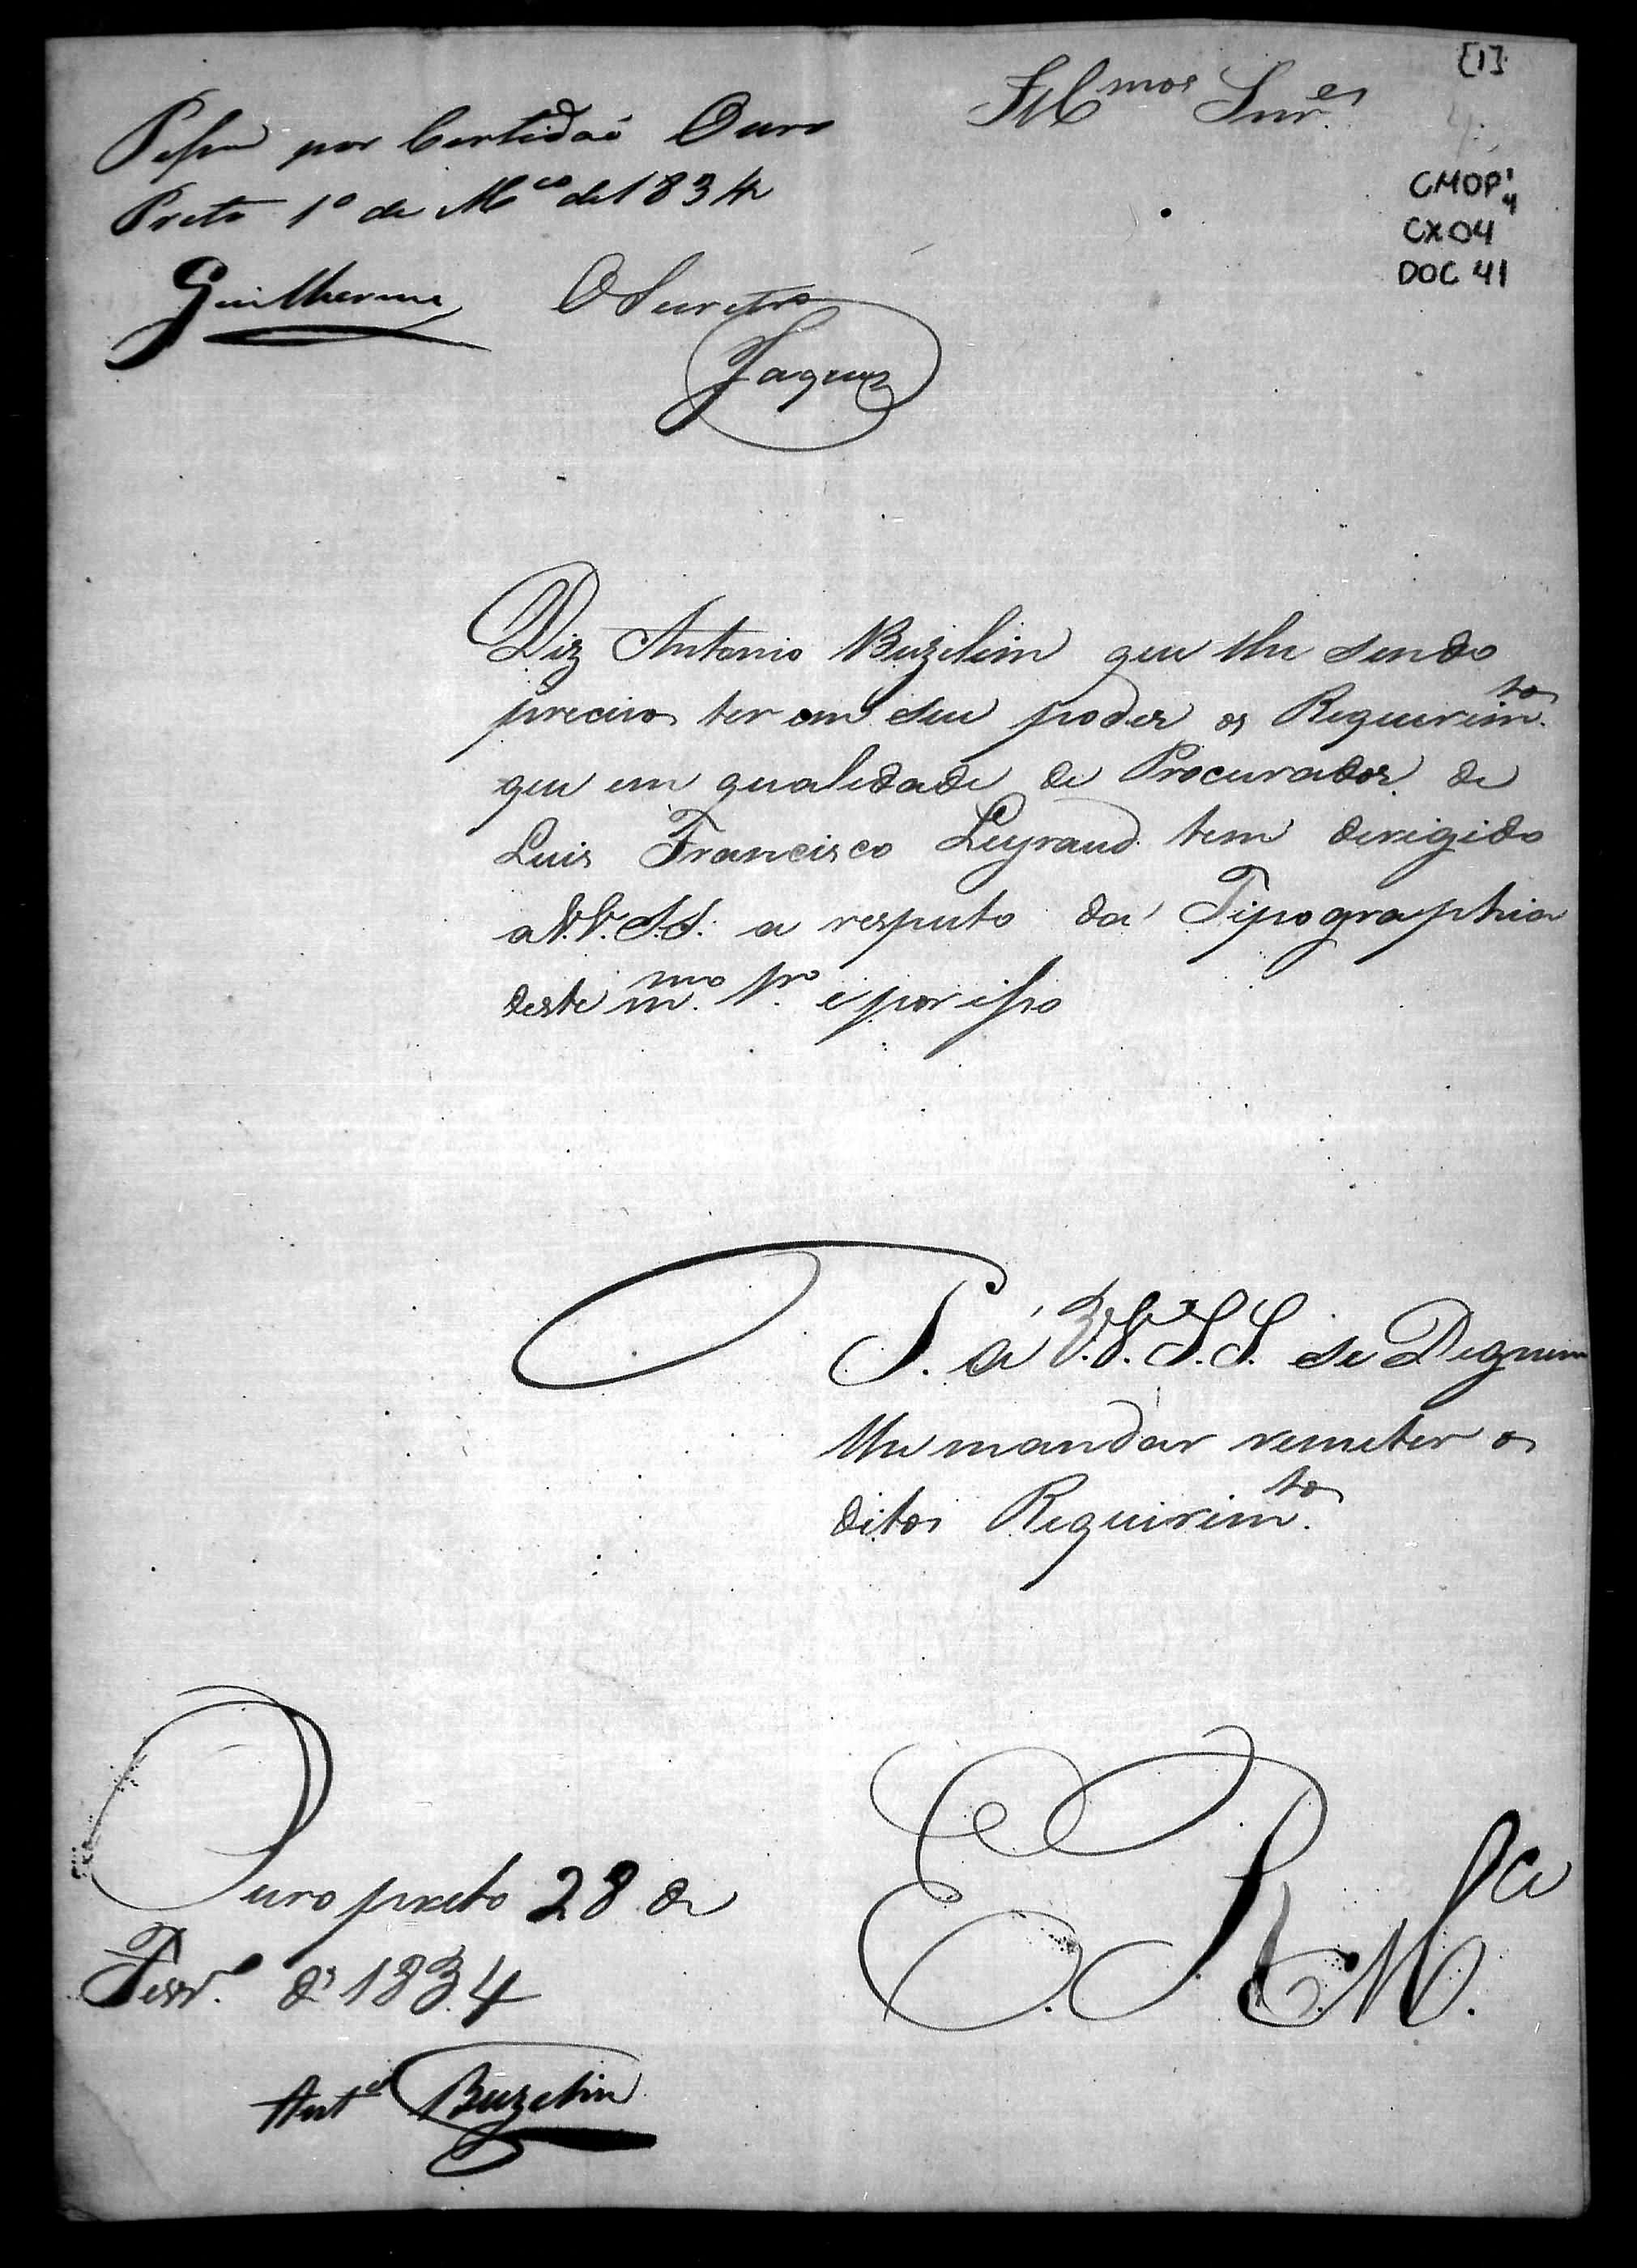 [1]
Illmos Snres
CMOP
CX04
DOC 41
Passe por Certidaõ Ouro
Preto 1º de Mço de 1834
Guilherme O Secretro
Jaques
Diz Antonio Buzelin que lhe sendo
preciso ter em seu poder os Requerimtos
que em qualidade de Procurador de
Luis Francisco Leyraud tem dirigido
a V.V. S.S. a respeito da Tipographia
deste mmo Nro e por isso
P. a V.V.S.S. se Dignem
lhe mandar remeter os
ditos Requirimtos
Ouro preto 28 de
Fevrº de 1834
Anto Buzelin
E. R. Mce